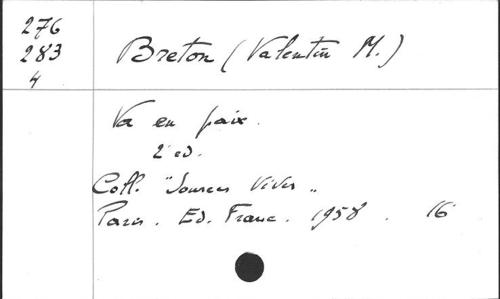 276
283
4
Breton (Valentin M.)
Va en paix.
2 ed.
Coll. "Sources Vives"
Paris. Ed. Franc. 1958. 16